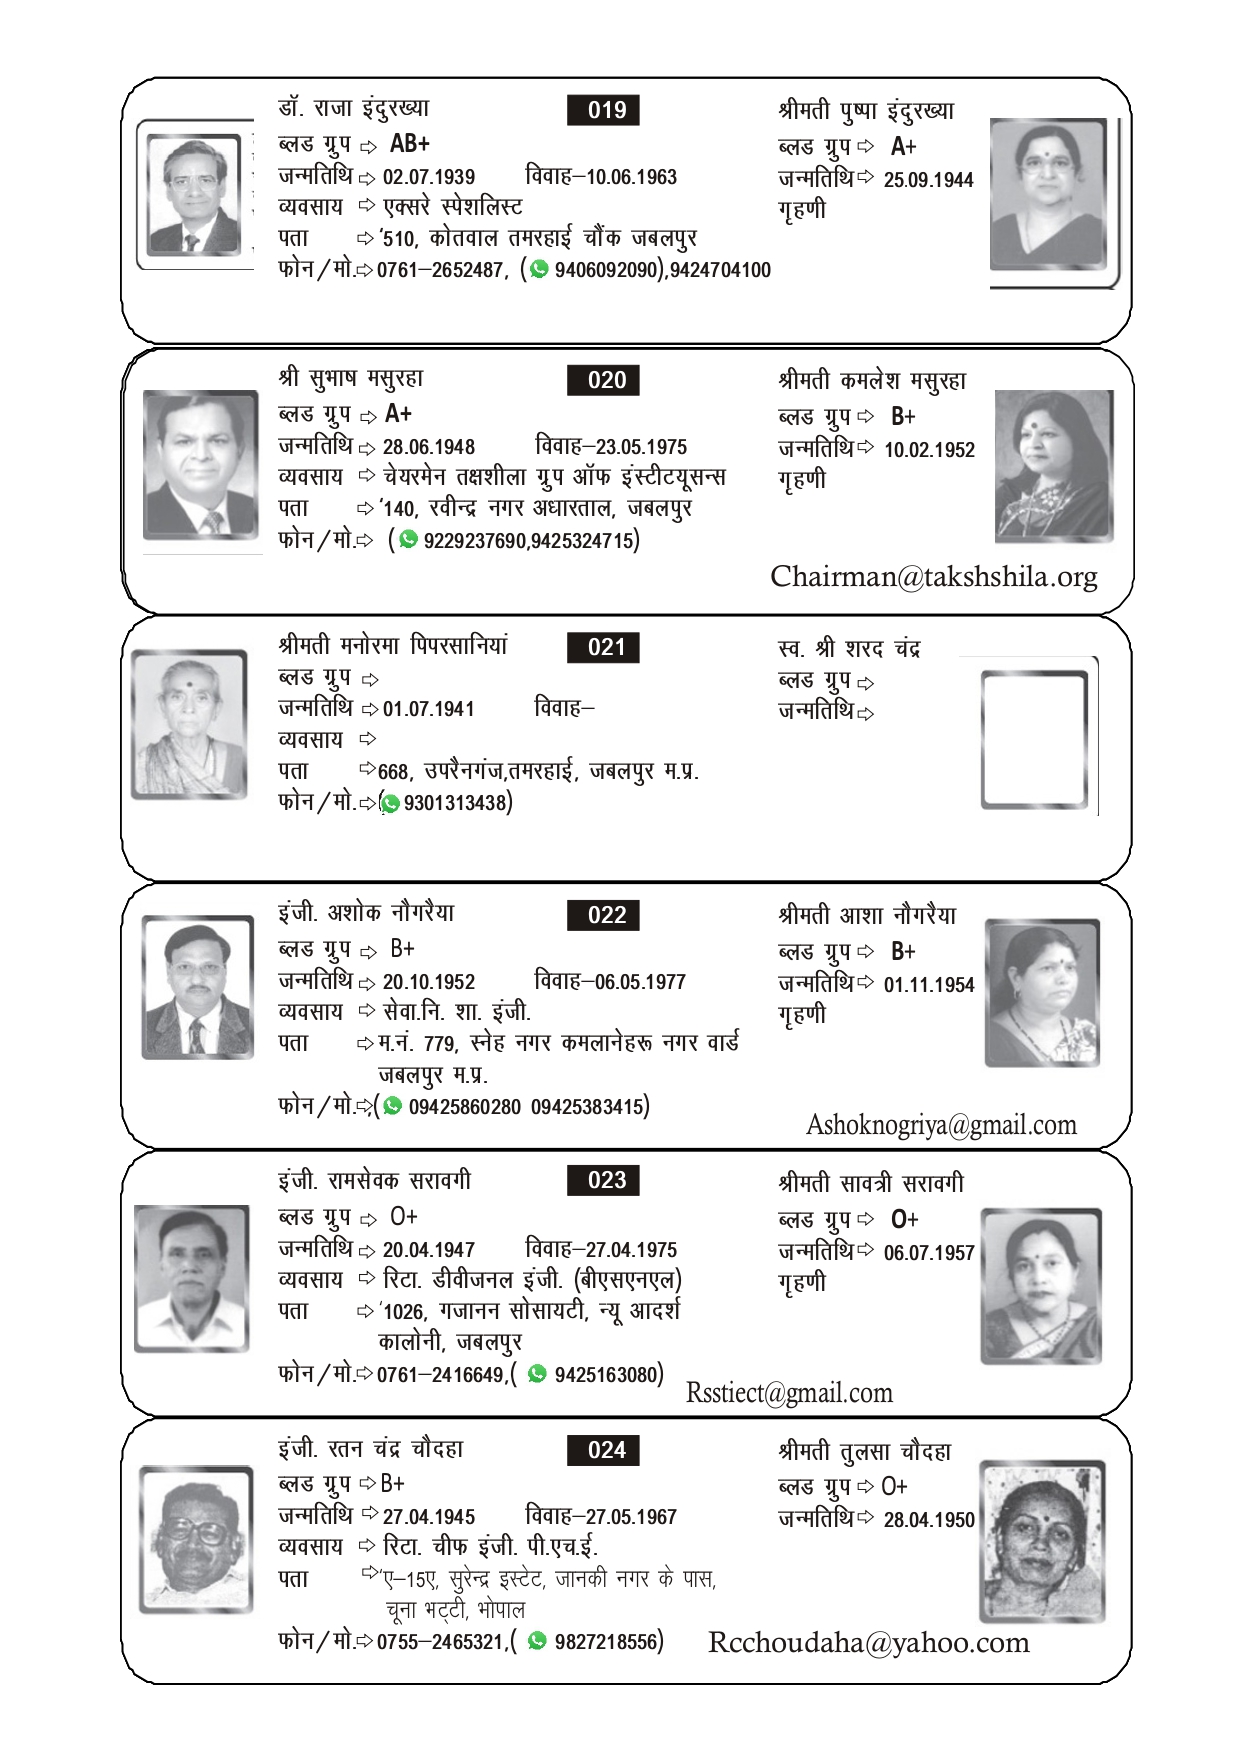 डॉ. राजा इंदुरख्या
019
श्रीमती पुष्पा इंदुरख्या
ब्लड ग्रुप ⇨ AB+
ब्लड ग्रुप ⇨ A+
जन्मतिथि ⇨ 02.07.1939 विवाह–10.06.1963
जन्मतिथि ⇨ 25.09.1944
व्यवसाय ⇨ एक्सरे स्पेशलिस्ट
गृहणी
पता ⇨ '510, कोतवाल तमरहाई चौंक जबलपुर
फोन/मो.⇨ 0761–2652487, ( 9406092090),9424704100
श्री सुभाष मसुरहा
020
श्रीमती कमलेश मसुरहा
ब्लड ग्रुप ⇨ A+
ब्लड ग्रुप ⇨ B+
जन्मतिथि ⇨ 28.06.1948 विवाह–23.05.1975
जन्मतिथि ⇨ 10.02.1952
व्यवसाय ⇨ चेयरमेन तक्षशीला ग्रुप ऑफ इंस्टीटयूसन्स
गृहणी
पता ⇨ '140, रवीन्द्र नगर अधारताल, जबलपुर
फोन/मो.⇨ ( 9229237690,9425324715)
Chairman@takshshila.org
श्रीमती मनोरमा पिपरसानियां
021
स्व. श्री शरद चंद्र
ब्लड ग्रुप ⇨
ब्लड ग्रुप ⇨
जन्मतिथि ⇨ 01.07.1941 विवाह–
जन्मतिथि ⇨
व्यवसाय ⇨
पता ⇨ 668, उपरैनगंज,तमरहाई, जबलपुर म.प्र.
फोन/मो.⇨ ( 9301313438)
इंजी. अशोक नौगरैया
022
श्रीमती आशा नौगरैया
ब्लड ग्रुप ⇨ B+
ब्लड ग्रुप ⇨ B+
जन्मतिथि ⇨ 20.10.1952 विवाह–06.05.1977
जन्मतिथि ⇨ 01.11.1954
व्यवसाय ⇨ सेवा.नि. शा. इंजी.
गृहणी
पता ⇨ म.नं. 779, स्नेह नगर कमलानेहरू नगर वार्ड
जबलपुर म.प्र.
फोन/मो.⇨,( 09425860280 09425383415)
Ashoknogriya@gmail.com
इंजी. रामसेवक सरावगी
023
श्रीमती सावत्री सरावगी
ब्लड ग्रुप ⇨ O+
ब्लड ग्रुप ⇨ O+
जन्मतिथि ⇨ 20.04.1947 विवाह–27.04.1975
जन्मतिथि ⇨ 06.07.1957
व्यवसाय ⇨ रिटा. डीवीजनल इंजी. (बीएसएनएल)
गृहणी
पता ⇨ '1026, गजानन सोसायटी, न्यू आदर्श
कालोनी, जबलपुर
फोन/मो.⇨ 0761–2416649,( 9425163080)
Rsstiect@gmail.com
इंजी. रतन चंद्र चौदहा
024
श्रीमती तुलसा चौदहा
ब्लड ग्रुप ⇨ B+
ब्लड ग्रुप ⇨ O+
जन्मतिथि ⇨ 27.04.1945 विवाह–27.05.1967
जन्मतिथि ⇨ 28.04.1950
व्यवसाय ⇨ रिटा. चीफ इंजी. पी.एच.ई.
पता ⇨ 'ए–15ए, सुरेन्द्र इस्टेट, जानकी नगर के पास,
चूना भट्टी, भोपाल
फोन/मो.⇨ 0755–2465321,( 9827218556)
Rcchoudaha@yahoo.com